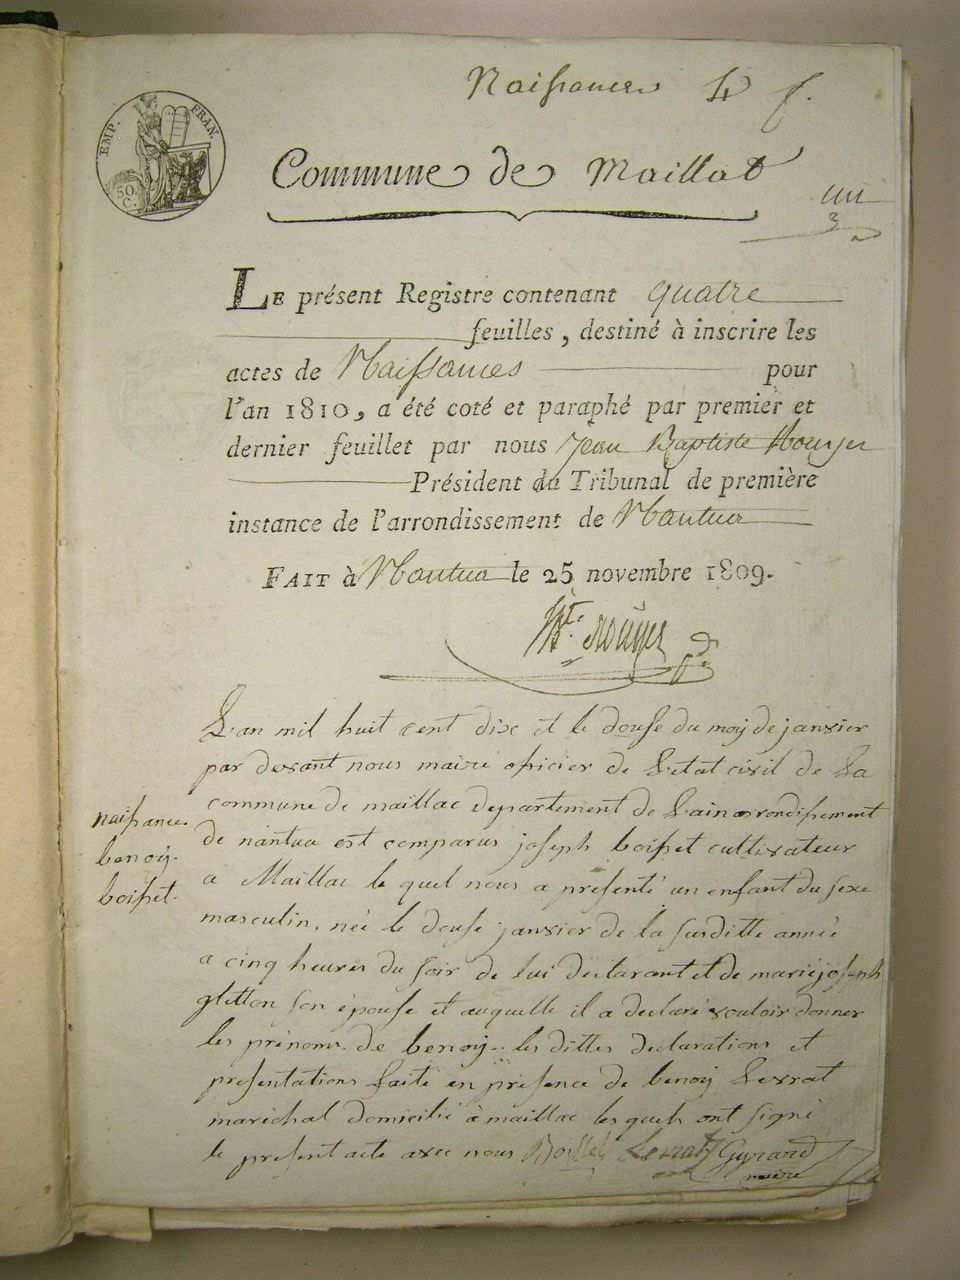 Naissances 4 f.
EMP. FRAN.
50. C.
Commune de Maillat
un
LE présent Registre contenant quatre
feuilles, destiné à inscrire les
actes de Naissances pour
l'an 1810, a été coté et paraphé par premier et
dernier feuillet par nous Jean Baptiste
Président du Tribunal de première
instance de l'arrondissement de Nantua
FAIT à Nantua le 25 novembre 1809.
L'an mil huit cent dix et le douse du moy de janvier
par devant nous maire oficier de L'etat civil de La
commune de maillac departement de Lain arrondisement
de nantua est comparus joseph boisset cultivateur
a Maillac le quel nous a presenté un enfant du sexe
masculin, née le douse janvier de la susditte année
a cinq heures du soir de lui declarant et de marie joseph
gletton son épouse et auquelle il a declaré vouloir donner
les prénoms de benoy. les dittes declarations et
presentations faite en présence de benoy Levrat
maréchal domicilié à maillac les quels ont signé
le present acte avec nous Boisset Levrat Gyrard
maire
naissance
benoy
boisset.